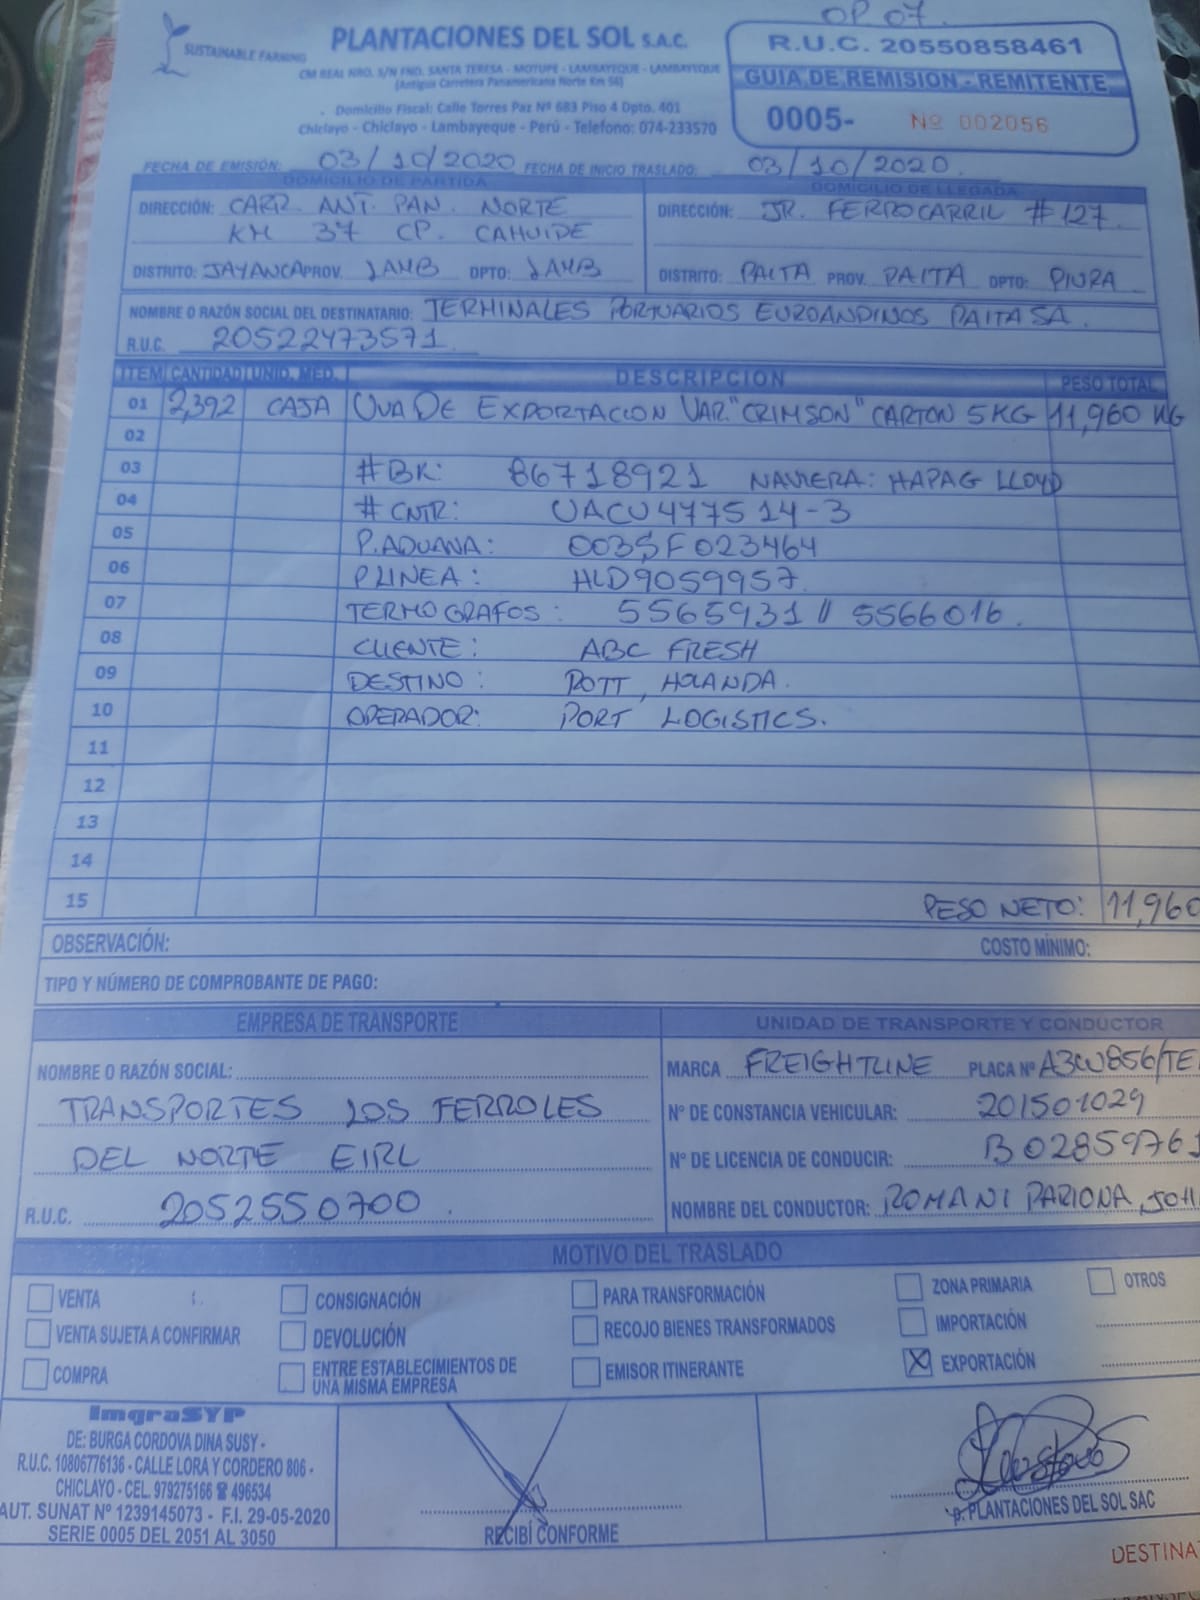 OP 07.
SUSTAINABLE FARMING
PLANTACIONES DEL SOL S.A.C.
CM REAL NRO. S/N FND. SANTA TERESA - MOTUPE - LAMBAYEQUE - LAMBAYEQUE
(Antigua Carretera Panamericana Norte Km 56)
Domicilio Fiscal: Calle Torres Paz Nº 683 Piso 4 Dpto. 401
Chiclayo - Chiclayo - Lambayeque - Perú - Telefono: 074-233570
R.U.C. 20550858461
GUIA DE REMISION - REMITENTE
0005- Nº 002056
FECHA DE EMISIÓN: 03/10/2020 FECHA DE INICIO TRASLADO: 03/10/2020.
DOMICILIO DE PARTIDA
DIRECCIÓN: CARR. ANT. PAN. NORTE
KM 37 CP. CAHUIDE
DISTRITO: JAYANCA PROV. LAMB DPTO: LAMB
DOMICILIO DE LLEGADA
DIRECCIÓN: JR. FERROCARRIL #127.
DISTRITO: PAITA PROV. PAITA DPTO: PIURA
NOMBRE O RAZÓN SOCIAL DEL DESTINATARIO: TERMINALES PORTUARIOS EUROANDINOS PAITA SA.
R.U.C. 20522473571.
ITEM CANTIDAD UNID. MED. DESCRIPCION PESO TOTAL
01 2,392 CAJA UVA DE EXPORTACION VAR. "CRIMSON" CARTON 5KG 11,960 KG
02
03 #BK: 86718921 NAVIERA: HAPAG LLOYD
04 # CNTR: UACU477514-3
05 P.ADUANA: 0035F023464
06 P.LINEA: HLD9059957.
07 TERMOGRAFOS: 5565931 // 5566016.
08 CLIENTE: ABC FRESH
09 DESTINO: ROTT, HOLANDA.
10 OPERADOR: PORT LOGISTICS.
11
12
13
14
15 PESO NETO: 11,960
OBSERVACIÓN: COSTO MÍNIMO:
TIPO Y NÚMERO DE COMPROBANTE DE PAGO:
EMPRESA DE TRANSPORTE
NOMBRE O RAZÓN SOCIAL:
TRANSPORTES LOS FERROLES
DEL NORTE EIRL
R.U.C. 2052550700.
UNIDAD DE TRANSPORTE Y CONDUCTOR
MARCA FREIGHTLINE PLACA Nº A3W856/TE
Nº DE CONSTANCIA VEHICULAR: 201501029
Nº DE LICENCIA DE CONDUCIR: B02859761
NOMBRE DEL CONDUCTOR: ROMANI PARIONA, JOH
MOTIVO DEL TRASLADO
VENTA CONSIGNACIÓN PARA TRANSFORMACIÓN ZONA PRIMARIA OTROS
VENTA SUJETA A CONFIRMAR DEVOLUCIÓN RECOJO BIENES TRANSFORMADOS IMPORTACIÓN
COMPRA ENTRE ESTABLECIMIENTOS DE UNA MISMA EMPRESA EMISOR ITINERANTE X EXPORTACIÓN
ImgraSYP
DE: BURGA CORDOVA DINA SUSY -
R.U.C. 10806776136 - CALLE LORA Y CORDERO 806 -
CHICLAYO - CEL. 979275166 ☎ 496534
AUT. SUNAT Nº 1239145073 - F.I. 29-05-2020
SERIE 0005 DEL 2051 AL 3050
RECIBÍ CONFORME
p. PLANTACIONES DEL SOL SAC
DESTINA